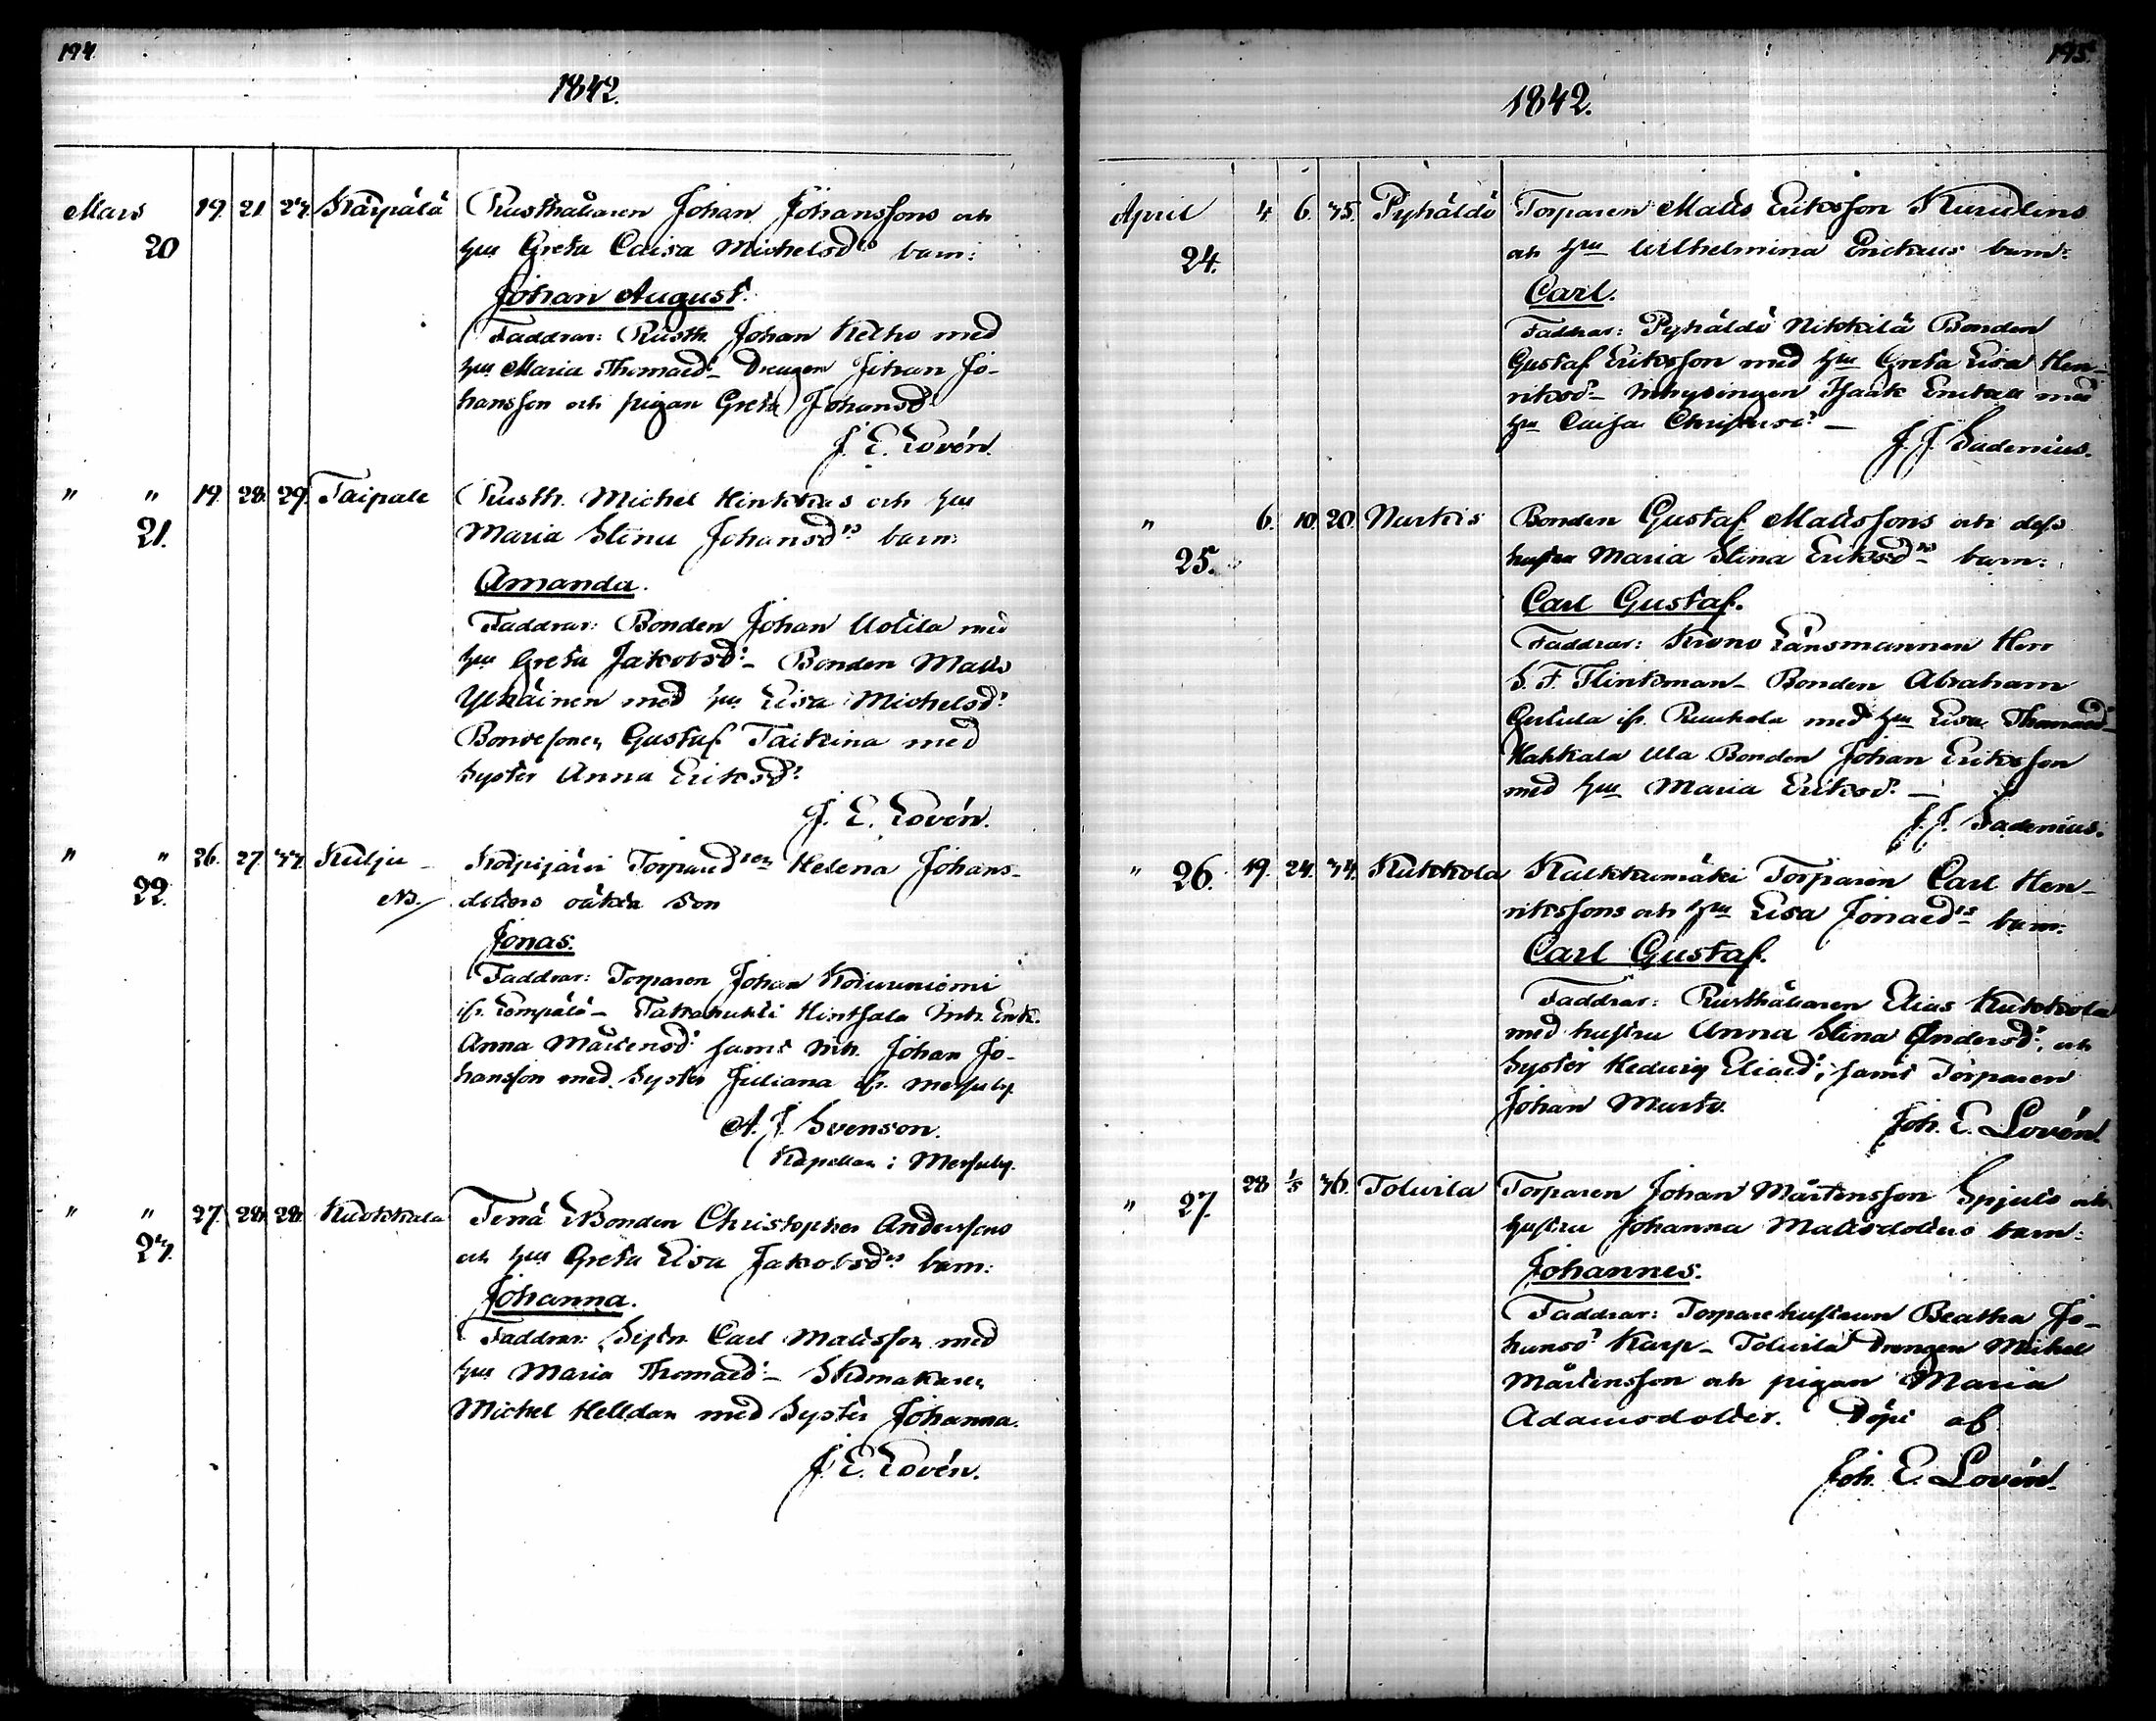 194.
1842.
Mars 19. 21. 27. Kärpälä Rusthållaren Johan Johanssons och
20 hu Greta Caisa Michelsds barn:
Johan August.
Faddrar: Rusth. Johan Ketho med
hu Maria Thomaed: – Drengen Johan Jo-
hansson och pigan Greta Johansd:
J. E. Lovén.
" " 19. 28. 29. Taipale Rusth. Michel Hinkkas och hu
21. Maria Stina Johansds barn:
Amanda.
Faddrar: Bonden Johan Uotila med
hu Greta Jakobsd: – Bonden Matts
Ylhäinen med hu Lisa Michelsd:
Bondesonen Gustaf Taikina med
Syster Anna Eriksd:
J. E. Lovén.
" " 26. 27. Kulju – Korpijärvi Helena Johans-
22. NB. dotters oäkta Son
Jonas.
Faddrar: Torparen Johan Koivuniemi
ifr. Lempälä – Hinthala Inh. Enk.
Anna Mårtensd: samt Inh. Johan Jo-
hansson med Syster Juliana ifr. Messuby.
A. J. Svenson.
Kapellan i Messuby.
" " 27. 28. 28. Kuokkala Penä Bonden Christopher Anderssons
27. och hu Greta Lisa Jakobsds barn:
Johanna.
Faddrar: Carl Matsson med
hu Maria Thomaed: – Skomakaren
Michel Helldan med Syster Johanna.
J. E. Lovén.
195.
1842.
April 4 6. 45. Pyhäldö Torparen Matts Eriksson Kurvlins
24. och hu Wilhelmina Erickaus barn:
Carl.
Faddrar: Pyhäldö Nikkilä Bonden
Gustaf Eriksson med hu Greta Lisa Hen-
riksd: – Inhysingen Isaak med
hu Caisa –
J. J. Sadenius.
" 6. 10. 20. Nurkis Bonden Gustaf Matssons och dess
25. hustru Maria Stina Eriksds barn:
Carl Gustaf.
Faddrar: Krono Länsmannen Herr
S. F. Flinkman – Bonden Abraham
ifr. Ruuhola med hu Lisa Thomaed: –
Hahkala Ala Bonden Johan Eriksson
med hu Maria Eriksd: –
J. J. Sadenius.
" 26. 19. 24. 44. Kukkola Kalkkumäki Torparen Carl Hen-
rikssons och hu Lisa Jonaeds barn:
Carl Gustaf.
Faddrar: Rusthållaren Elias Kukkola
med hustru Anna Stina Andersd:, och
Syster Hedvig Eliaed:, samt Torparen
Johan Murto.
Joh. E. Lovén.
" 27. 28 1/5 46. Tolvila Torparen Johan Mårtensson Spjuts och
hustru Johanna Matsdotters barn:
Johannes.
Faddrar: Torparehustrun Beatha Jo-
hansd: Karp – Tolvila Drengen Mikel
Mårtensson och pigan Maria
Adamsdotter. Döpt af
Joh. E. Lovén.